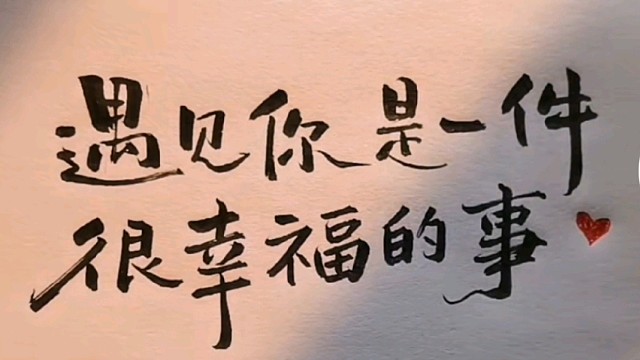 遇见你是一件
很幸福的事